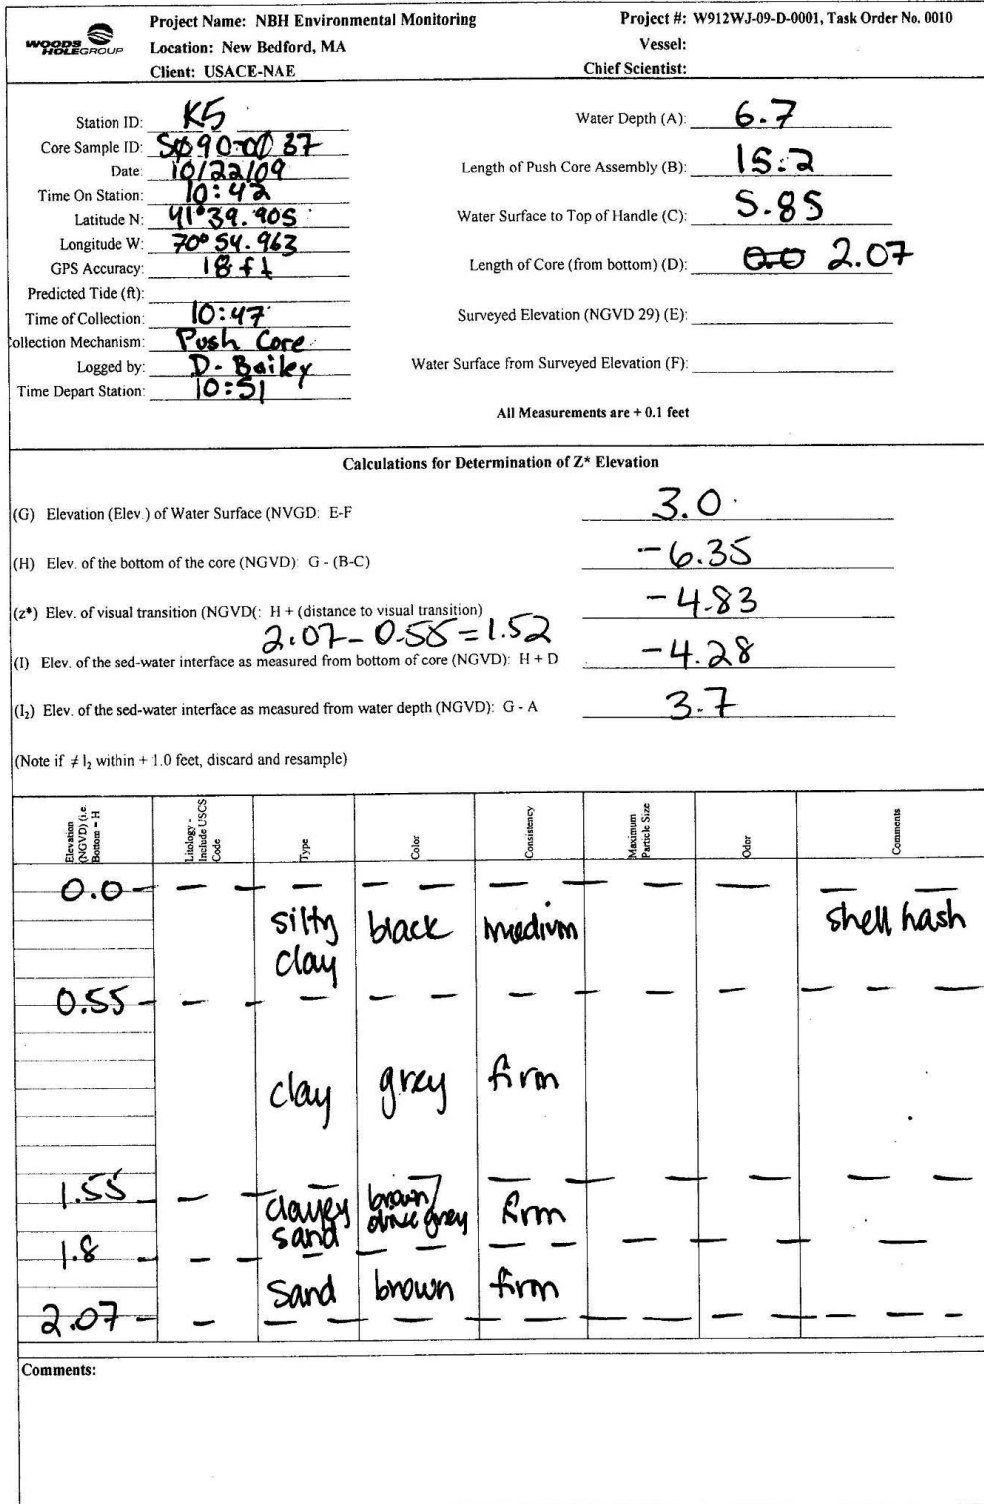 WOODS HOLE GROUP
Project Name: NBH Environmental Monitoring
Project #: W912WJ-09-D-0001, Task Order No. 0010
Location: New Bedford, MA
Vessel:
Client: USACE-NAE
Chief Scientist:
Station ID: K5
Core Sample ID: SØ90-00 37
Date: 10/22/09
Time On Station: 10:42
Latitude N: 41°39.905
Longitude W: 70° 54.963
GPS Accuracy: 18 ft
Predicted Tide (ft):
Time of Collection: 10:47
ollection Mechanism: Push Core
Logged by: D. Bailey
Time Depart Station: 10:51
Water Depth (A): 6.7
Length of Push Core Assembly (B): 15.2
Water Surface to Top of Handle (C): 5.85
Length of Core (from bottom) (D): 2.07
Surveyed Elevation (NGVD 29) (E):
Water Surface from Surveyed Elevation (F):
All Measurements are + 0.1 feet
Calculations for Determination of Z* Elevation
(G) Elevation (Elev.) of Water Surface (NVGD: E-F 3.0
(H) Elev. of the bottom of the core (NGVD): G - (B-C) -6.35
(z*) Elev. of visual transition (NGVD(: H + (distance to visual transition) -4.83
2.07 - 0.55 = 1.52
(I) Elev. of the sed-water interface as measured from bottom of core (NGVD): H + D -4.28
(I₂) Elev. of the sed-water interface as measured from water depth (NGVD): G - A 3.7
(Note if ≠ I₂ within + 1.0 feet, discard and resample)
Elevation (NGVD) (i.e. Bottom = H
Litology - Include USCS Code
Type
Color
Consistency
Maximum Particle Size
Odor
Comments
0.0
silty clay black medium shell hash
0.55
clay grey firm
1.55
clayey sand brown/ olive grey firm
1.8
sand brown firm
2.07
Comments: